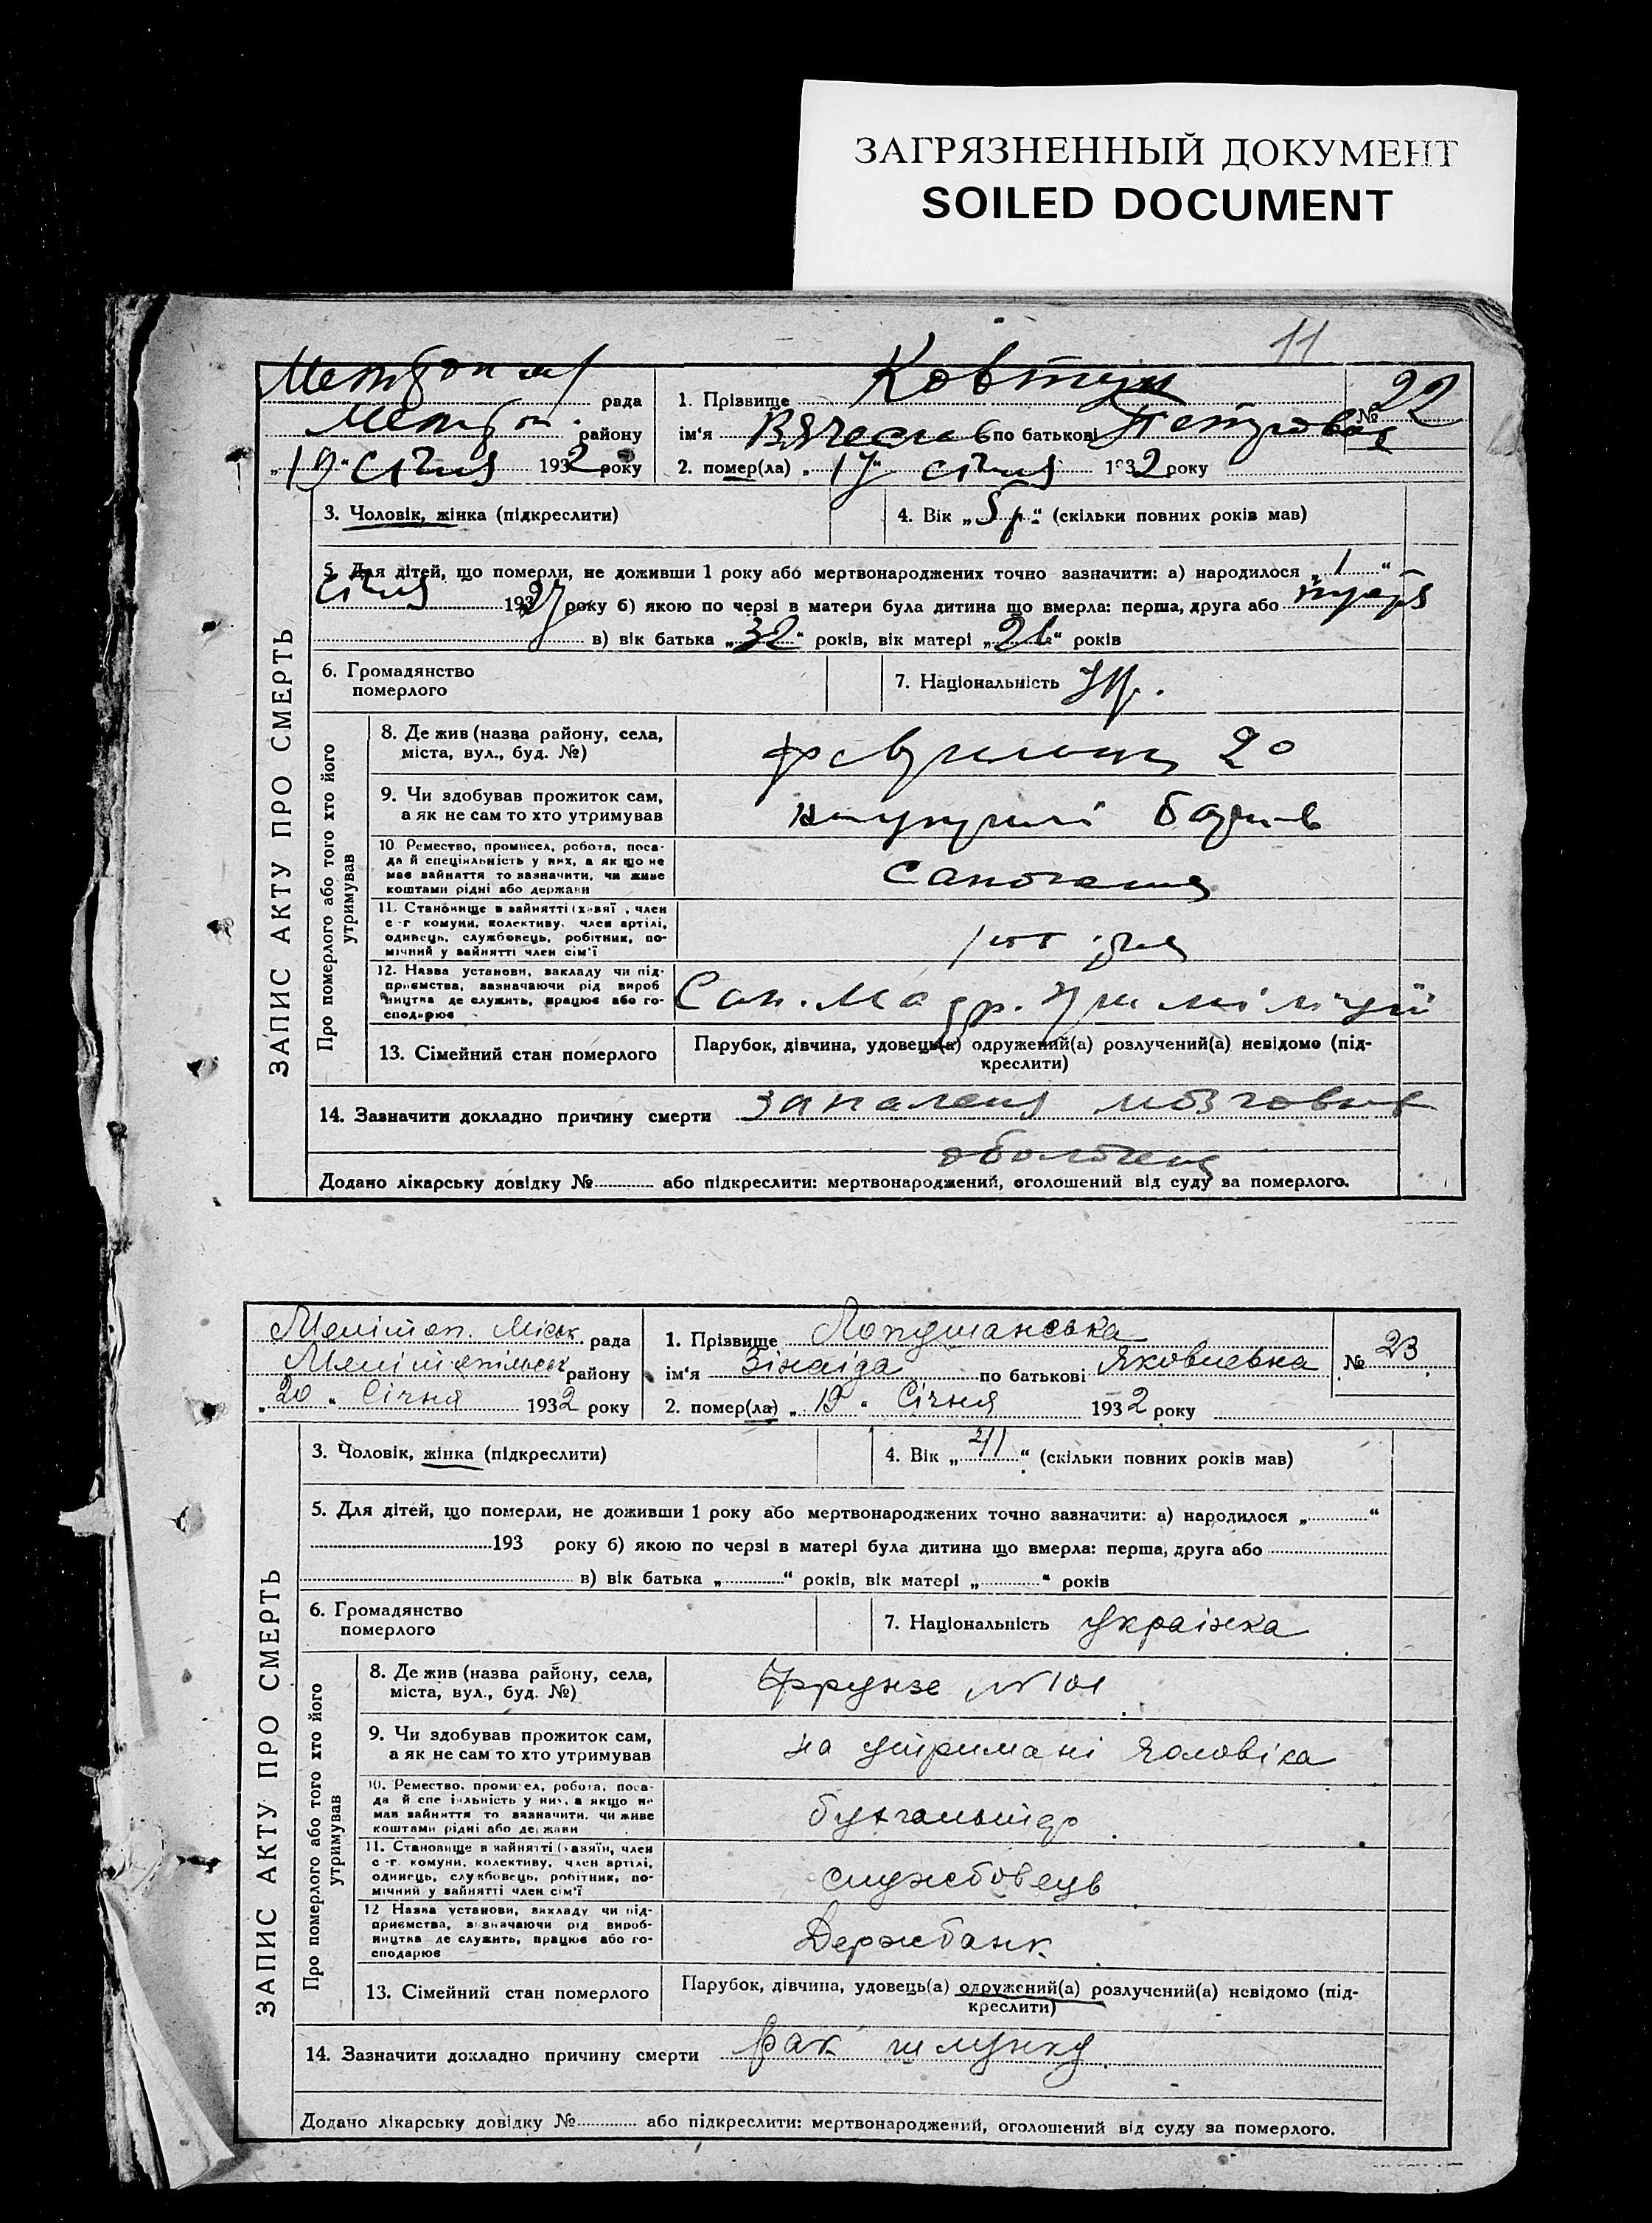 ЗАГРЯЗНЕННЫЙ ДОКУМЕНТ
SOILED DOCUMENT
11
рада
району
„19“ січня 1932 року
1. Прізвище Ковтун
ім'я Вячеслав по батькові Петрович
№ 22
2. помер(ла) „17“ січня 1932 року
3. Чоловік, жінка (підкреслити)
4. Вік „5 р.“ (скільки повних років мав)
5. Для дітей, що померли, не доживши 1 року або мертвонароджених точно зазначити: а) народилося „1“
січня 1927 року б) якою по черзі в матери була дитина що вмерла: перша, друга або
в) вік батька „32“ років, вік матері „“ років
6. Громадянство
померлого
7. Національність Укр.
ЗАПИС АКТУ ПРО СМЕРТЬ
Про померлого або того хто його
утримував
8. Де жив (назва району, села,
міста, вул., буд. №)
20
9. Чи здобував прожиток сам,
а як не сам то хто утримував
10. Ремество, промисел, робота, поса-
да й спеціяльність у них, а як що не
має зайняття то зазначити, чи живе
коштами рідні або держави
11. Становище в зайнятті (хазяї, член
с-г. комуни, колективу, член артілі,
одинець, службовець, робітник, по-
мічний у зайнятті член сім'ї
12. Назва установи, закладу чи під-
приємства, зазначаючи рід вироб
ництва де служить, працює або го-
сподарює
Сап. міліції
13. Сімейний стан померлого
Парубок, дівчина, удовець(а) одружений(а) розлучений(а) невідомо (під-
креслити)
14. Зазначити докладно причину смерти запаленя мозговых
оболочек
Додано лікарську довідку № або підкреслити: мертвонароджений, оголошений від суду за померлого.
Меліт оп. Міськ рада
Мелітопільськ району
„20“ Січня 1932 року
1. Прізвище Лопушанська
ім'я Зінаіда по батькові Яковлевна
№ 23
2. помер(ла) „19“ Січня 1932 року
3. Чоловік, жінка (підкреслити)
4. Вік „41“ (скільки повних років мав)
5. Для дітей, що померли, не доживши 1 року або мертвонароджених точно зазначити: а) народилося „“
193 року б) якою по черзі в матері була дитина що вмерла: перша, друга або
в) вік батька „“ років, вік матері „“ років
6. Громадянство
померлого
7. Національність украінка
ЗАПИС АКТУ ПРО СМЕРТЬ
Про померлого або того хто його
утримував
8. Де жив (назва району, села,
міста, вул., буд. №)
Фрунзе № 101
9. Чи здобував прожиток сам,
а як не сам то хто утримував
на утримані чоловіка
10. Ремество, промисел, робота, поса-
да й спеціяльність у них, а якщо не
мав зайняття то зазначити, чи живе
коштами рідні або держави
бухгальтер
11. Становище в зайнятті (хазяїн, член
с-г. комуни, колективу, член артілі,
одинець, службовець, робітник, по-
мічний у зайнятті член сім'ї
службовець
12 Назва установи, закладу чи під-
приємства, зазначаючи рід вироб-
ництва де служить, працює або го-
сподарює
Держбанк
13. Сімейний стан померлого
Парубок, дівчина, удовець(а) одружений(а) розлучений(а) невідомо (під-
креслити)
14. Зазначити докладно причину смерти рак шлунку
Додано лікарську довідку № або підкреслити: мертвонароджений, оголошений від суду за померлого.